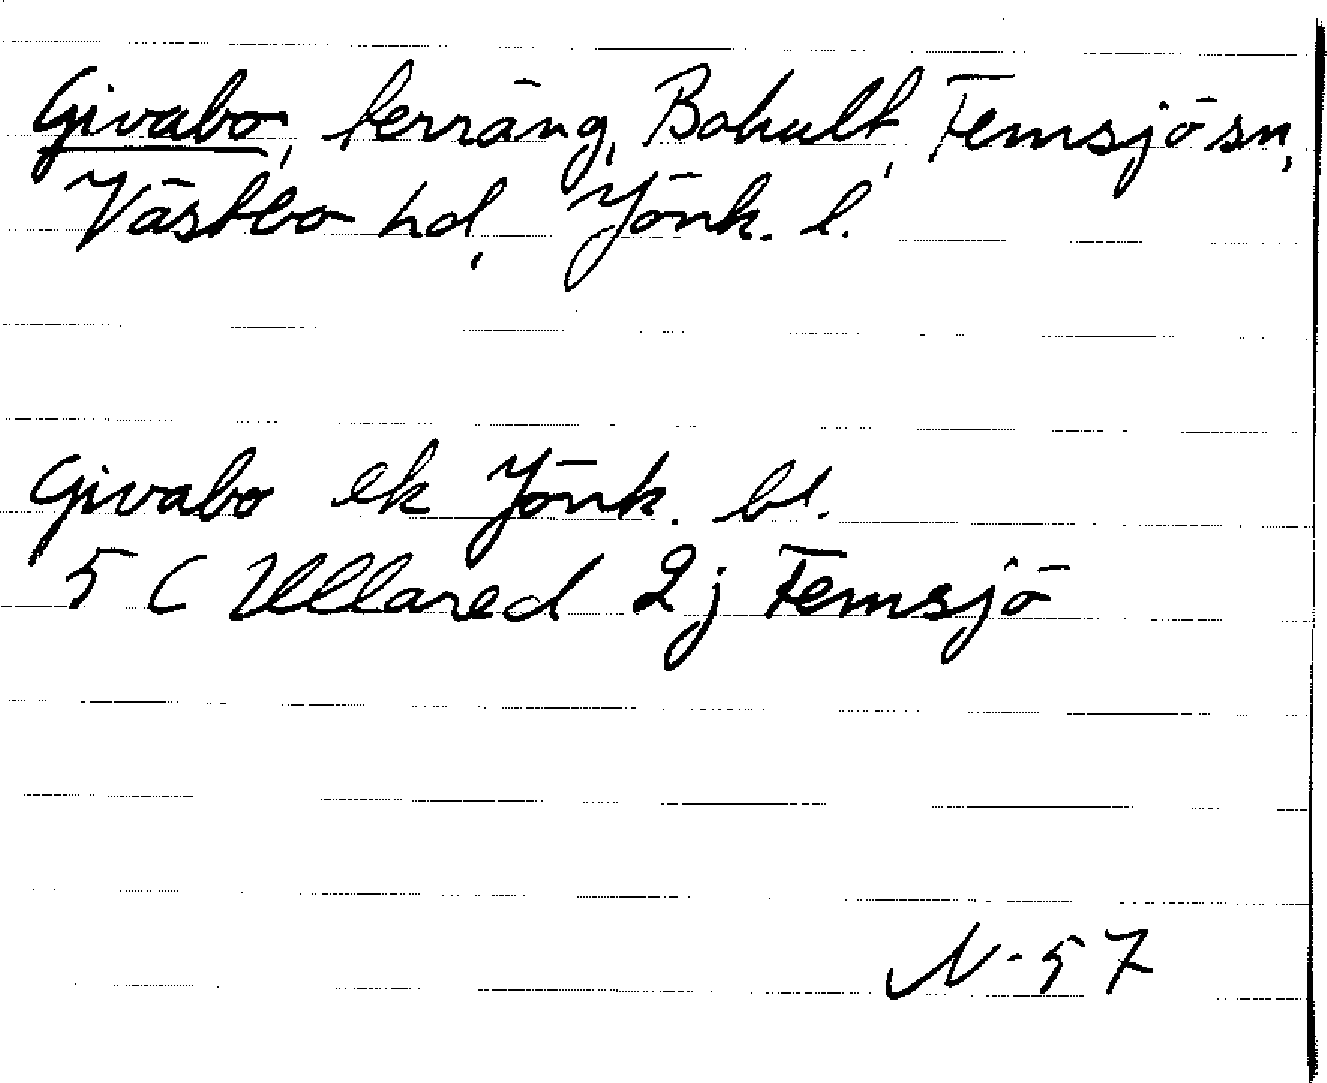 Givabo, terräng, Bohult, Femsjö sn,
Västbo hd, Jönk. l.
Givabo ek Jönk. bl.
5 C Ullared 2j Femsjö
N-57